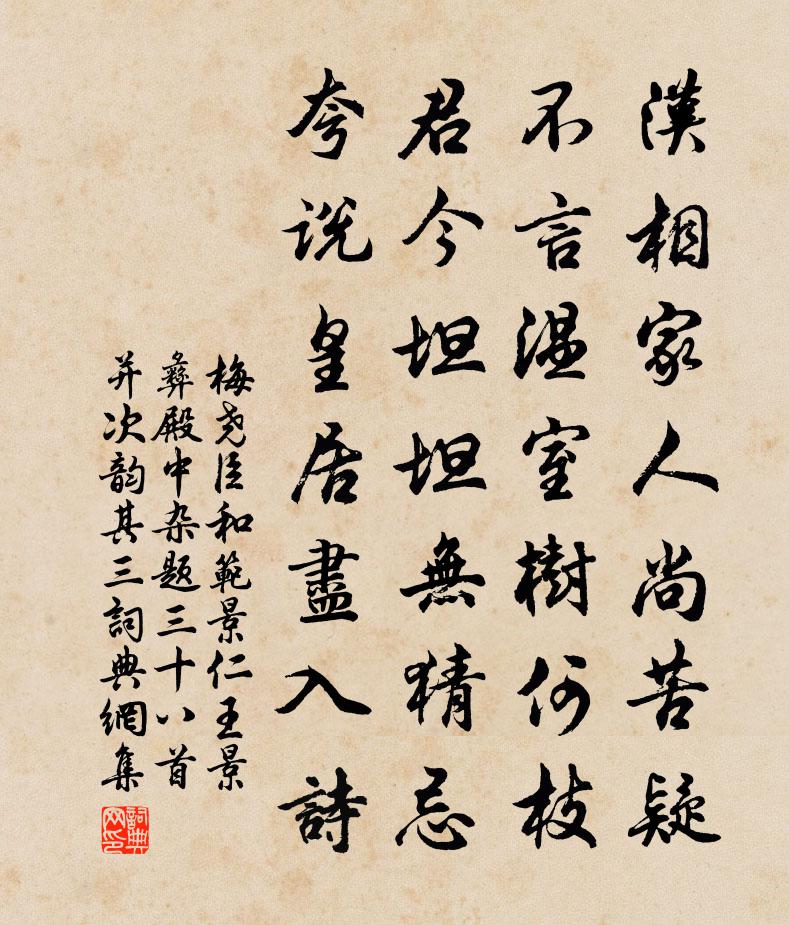 漢相家人尚苦疑
不言温室樹何枝
君今坦坦無猜忌
夸説皇居盡入詩
梅尧臣和範景仁王景
彝殿中杂题三十八首
并次韵其三詞典網集
詞典
网印